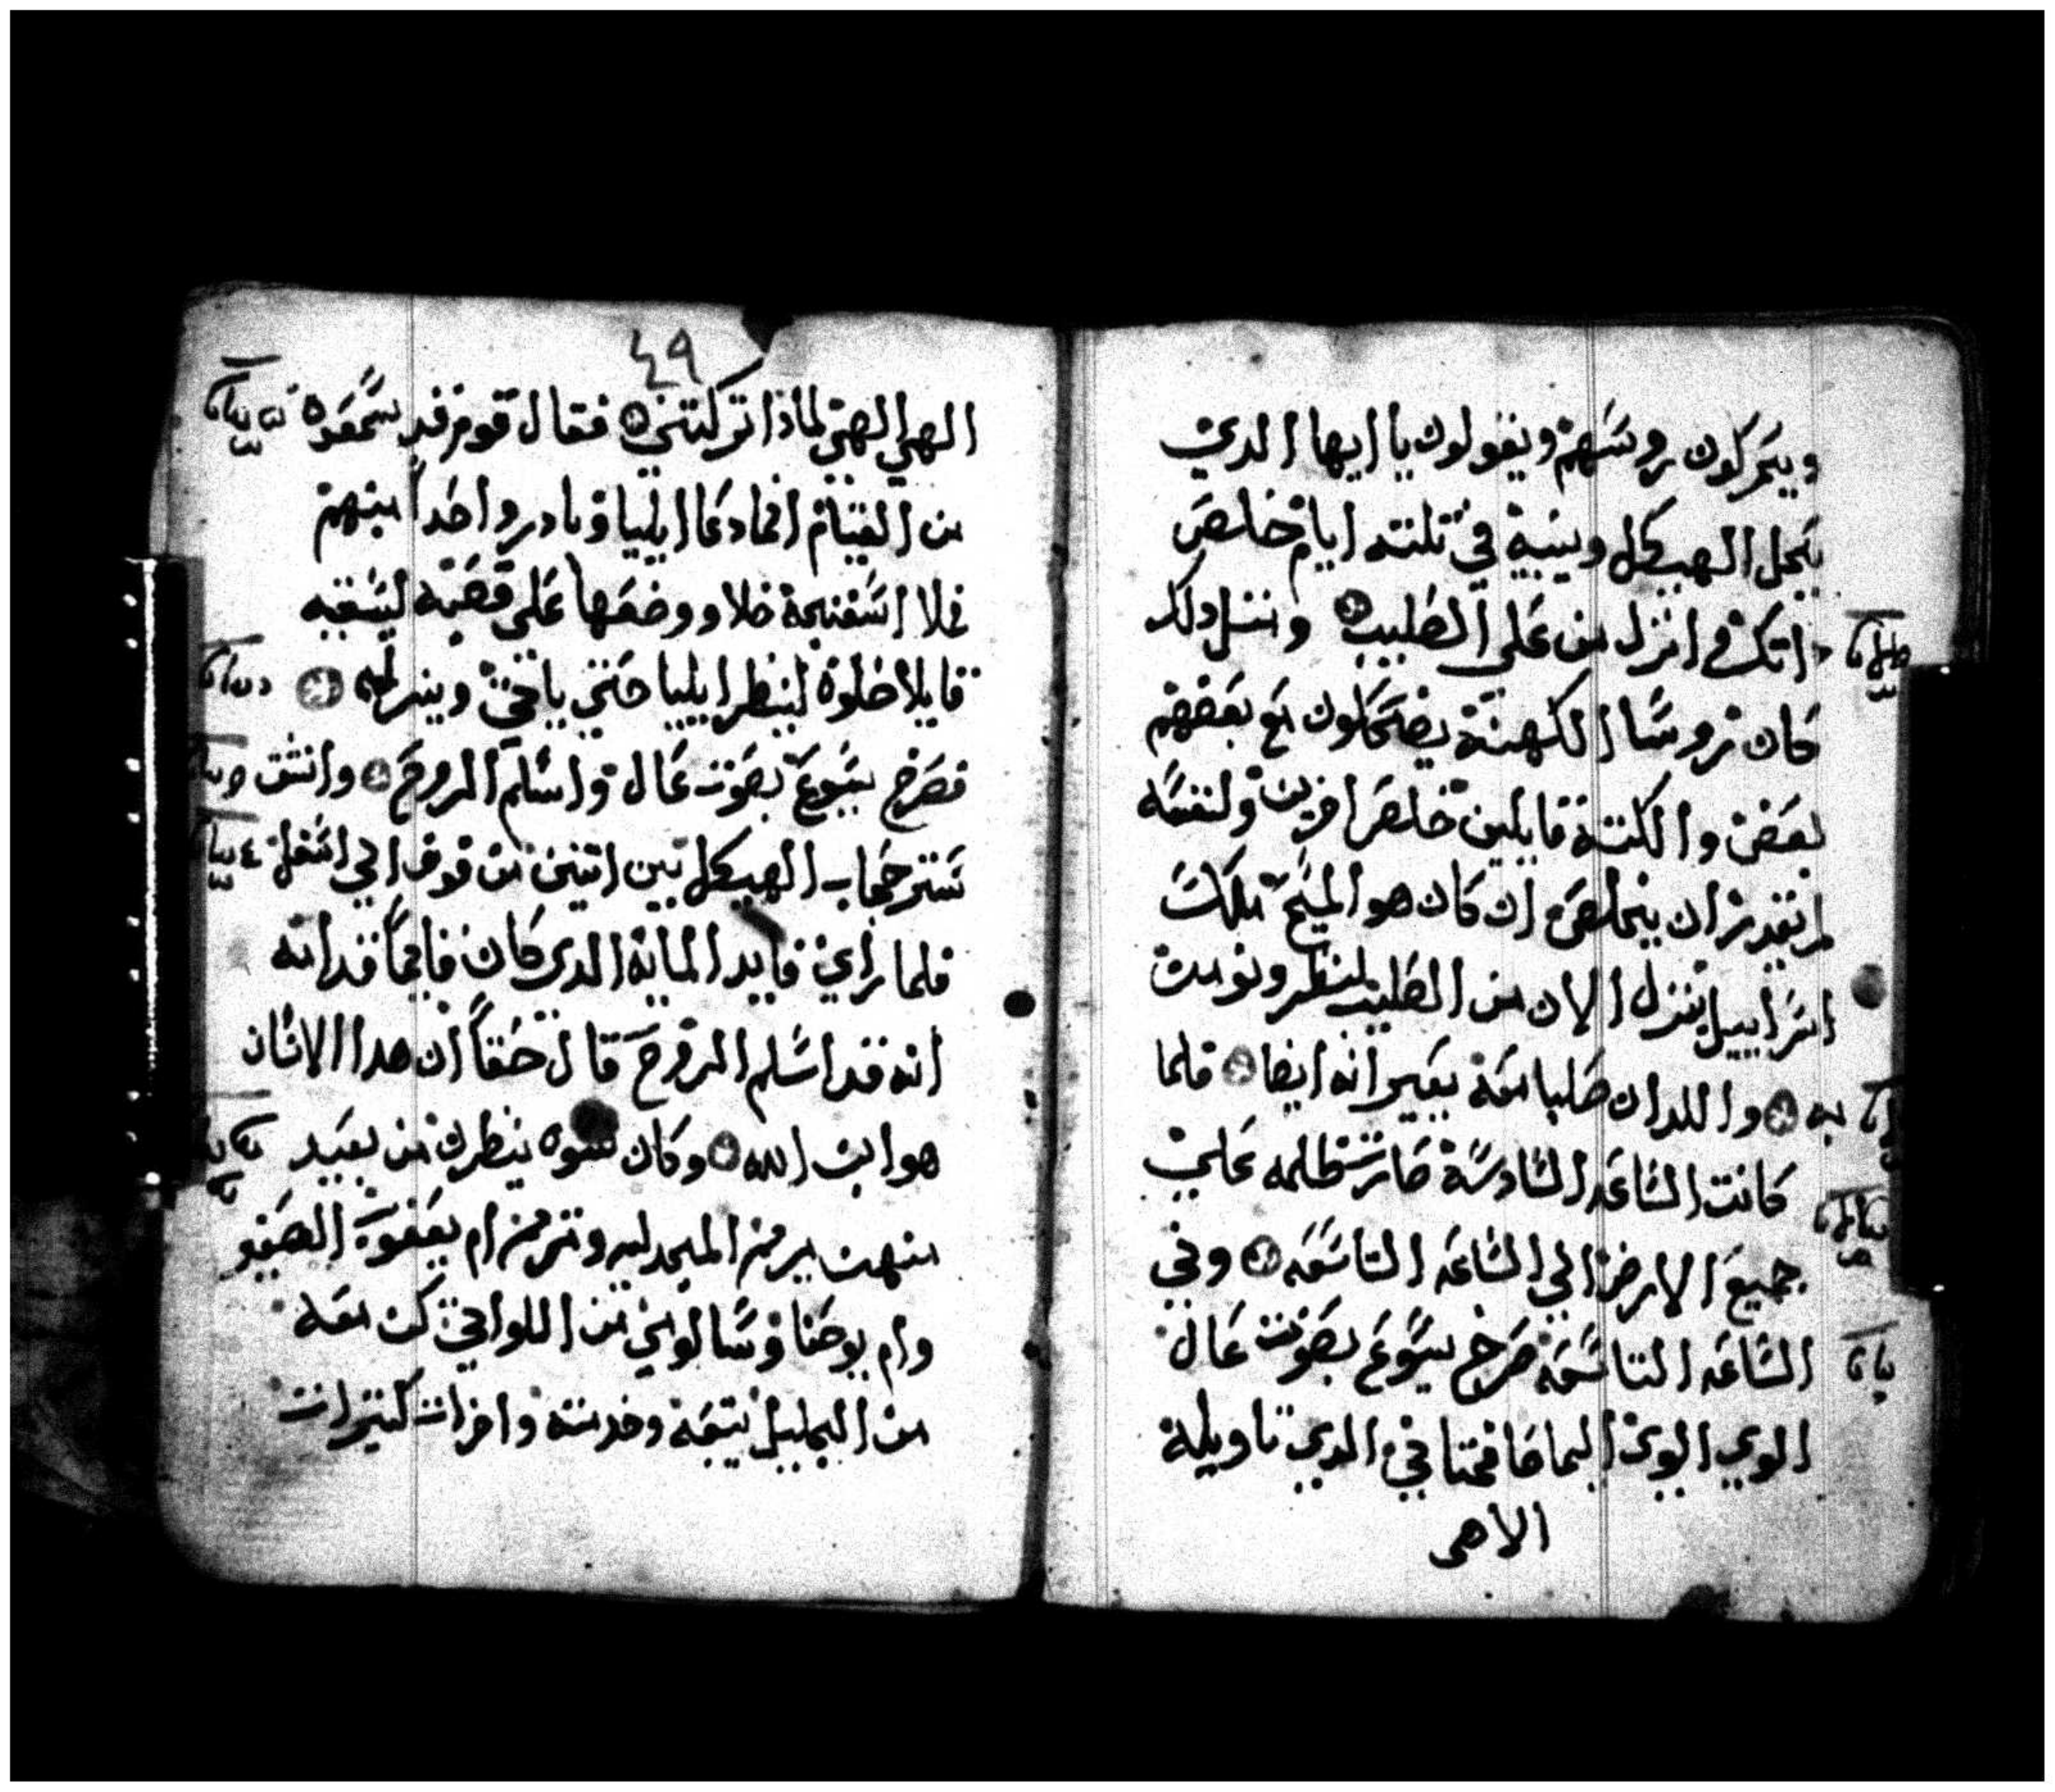 ويحركون روسهم ويقولون يا ايها الدي
يحل الهيكل ويبنيه في تلتته ايام خلص
انزل من على الصليب ومتل دلك
كان روسا الكهنة يضحكون مع بعضهم
بعض والكتبة قايلين خلص اخرين ولنفسه
لم يقدر ان يخلص ان كان هو المسيح ملك
اسراييل ينزل الان من الصليب لننظر ونومن
به واللدان صلبا معه يعيرانه ايضا فلما
كانت الساعه السادسة صارت ظلمه علي
جميع الارض الي الساعه التاسعه وفي
الساعه التاسعه صرخ يسوع بصوت عال
الوي الوي اليما صافختاني الدي تاويله
الاهي
٤٩
الهي الهي لماذا تركتني فقال قوم قد سمعوه
من القيام انما دعا ايليا وبادر واحدا منهم
فملا اسفنجة خلا ووضعها على قصبه ليسقيه
قايلا خلوه لينظر ايليا حتي ياتي وينزله
فصرخ يسوع بصوت عال واسلم الروح وانشق
ستر حجاب الهيكل بين اتنين من فوق الي اسفل
فلما راي قايد الماية الدي كان قايما قدامه
انه قد اسلم الروح قال حقا ان هدا الانسان
هو ابن الله وكان نسوه ينظرن من بعيد
منهن مريم المجدليه ومريم ام يعقوب الصغير
وام يوحنا وسالومي من اللواتي كن معه
من الجليل يتبعنه وخدمته واخرات كتيرات